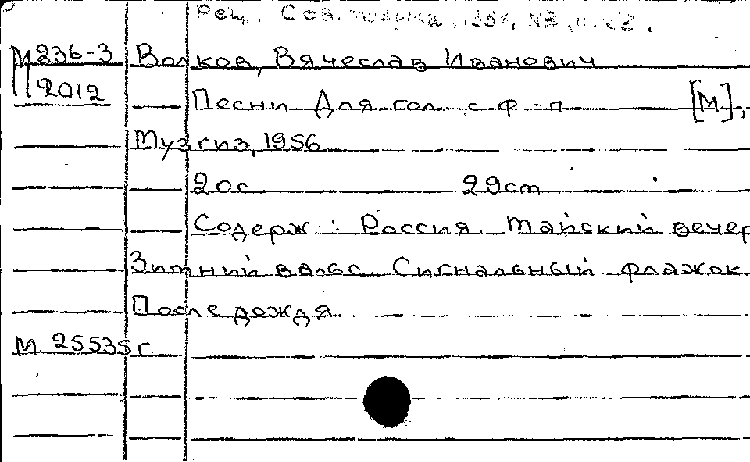 Рец. Сов. музыка
М 236-3 Волков, Вячеслав Иванович
2012 Песни Для гол. с ф-п [М.],
Музгиз, 1956
20с 29cm
Содерж: Россия. Майский вечер
Зимний вальс. Сигнальный флажок
После дождя
М 25535г